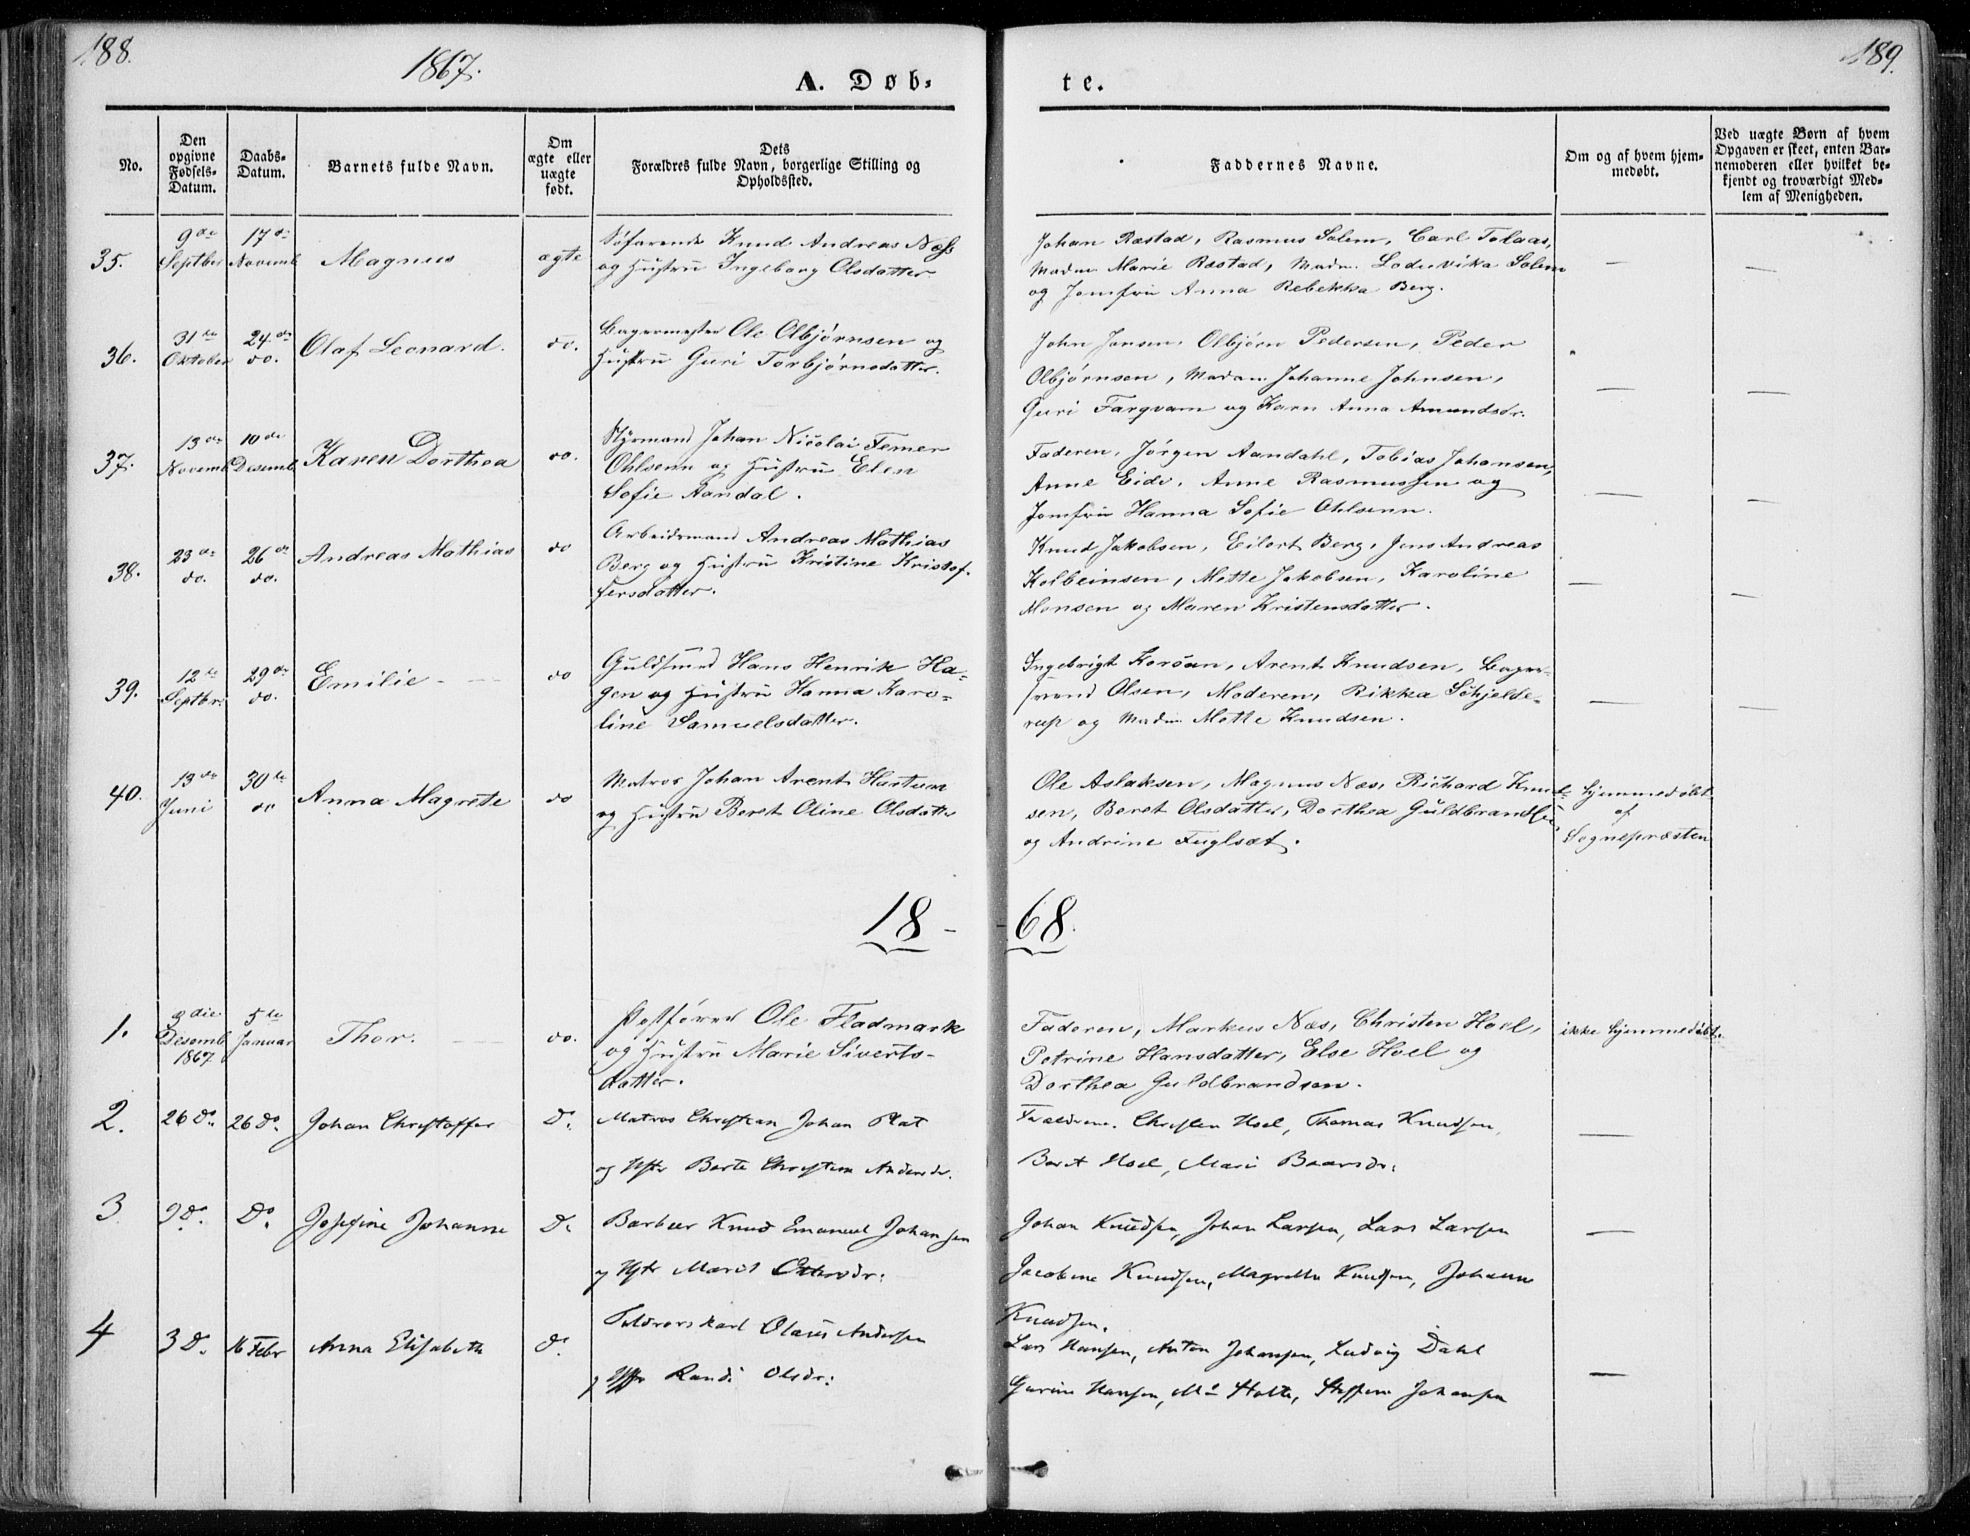 188.
1867.
A. Døb-
te.
189.
No.
Den opgivne Fødsels-Datum.
Daabs-Datum.
Barnets fulde Navn.
Om ægte eller uægte født.
Dets Forældres fulde Navn, borgerlige Stilling og Opholdssted.
Faddernes Navne.
Om og af hvem hjem-medøbt.
Ved uægte Børn af hvem Opgaven er skeet, enten Bar-nemoderen eller hvilket be-kjendt og troværdigt Med-lem af Menigheden.
35.
9de Septbr
17de Novembr
Magnus
ægte
Søfarende Knud Andreas Næss
og Hustru Ingeborg Olsdatter
Johan Røstad, Rasmus Solem, Carl Tolaas,
Madm Marie Røstad, Madm. Lodovika Solem
og Jomfru Anna Rebekka Berg.
—
—
36.
31te Oktober
24de do.
Olaf Leonard.
do.
Bagermester Ole Olbjørnsen og
Hustru Guri Torbjørnsdatter.
John Jonsen, Olbjørn Pedersen, Peder
Olbjørnsen, Madam Johanne Johnsen,
Guri Fargvam og Karn Anna Amundsdr.
—
—
37.
13de Novemb
10de Desemb
Karen Dorthea
do.
Styrmand Johan Nicolai Femer
Ohlsenn og Hustru Elen
Sofie Aandal.
Faderen, Jørgen Aandahl, Tobias Johansen,
Anne Eide, Anne Rasmussen og
Jomfru Hanna Sofie Ohlsenn.
—
—
38.
23de do.
26de do.
Andreas Mathias
do
Arbeidsmand Andreas Mathias
Berg og Hustru Kristine Kristof-
fersdatter.
Knud Jakobsen, Eilert Berg, Jens Andreas
Kolbeinsen, Mette Jakobsen, Karoline
Monsen og Maren Kristensdatter.
—
—
39.
12te Septbr.
29de do.
Emilie
do
Guldsmed Hans Henrik Ha-
gen og Hustru Hanna Karo-
line Samuelsdatter.
Ingebrigt Korsøen, Arent Knudsen, Bager-
svend Olsen, Moderen, Rikka Schjelde-
rup og Madm Mette Knudsen.
—
—
40.
13de Juni
30te do
Anna Magrete
do
Matros Johan Arent Hartum
og Hustru Beret Oline Olsdatter
Ole Aslaksen, Magnus Næs, Richard Knud-
sen, Beret Olsdatter, Dorthea Guldbrandsen,
og Andrine Fuglset.
hjemmedøbt
af
Sognepræsten
18 - 68.
1.
Desemb 1867
5te Januar
Thor.
do.
Postfører Ole Fladmark
og Hustru Marie Siverts-
datter.
Faderen, Markus Næs, Christen Hoel,
Petrine Hansdatter, Else Hoel og
Dorthea Guldbrandsen.
ikke hjemmedøbt.
2.
26 do.
26 do.
Johan Christoffer
do.
Matros Christian Johan Plat
og Hstr Berte Andersdr.
Forældrene. Christen Hoel, Thomas Knudsen,
Beret Hoel, Mari
—
3
9 do.
do.
Josefine Johanne
do
Barber Knud Emanuel Johansen
og Hstr Marit Ottersdr.
Johan Knudsen, Johan Larsen, Lars Larsen
Jacobine Knudsen, Magrethe Knudsen, Johanne
Knudsen.
—
4
3 do.
16 Febr
Anna Elisabeth
do.
Olaus Andersen
og Hstr Randi Olsdr.
Lars Hansen, Anton Johansen, Ludvig Dahl
Gurine Hansen, Md Holte, Johansen
—